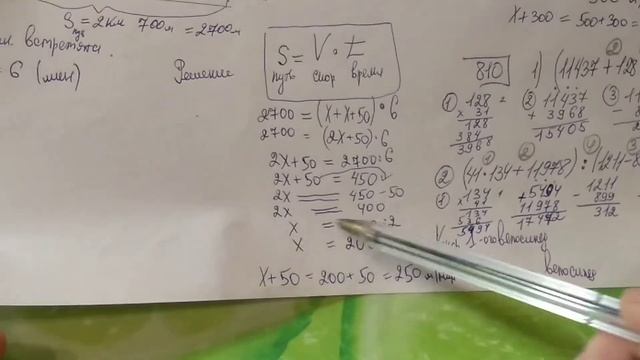 S = 2км 700м = 2700м
путь
встретятся.
= 6 (мин)
Решение
S = V · t
путь скор время
2700 = (x+x+50) · 6
2700 = (2x+50) · 6
2x+50 = 2700:6
2x+50 = 450
2x = 450-50
2x = 400
x = :2
x = 20
x+50 = 200+50 = 250 м/мин
x+300 =
500+300 =
810
1) (11437 + 128
① 128
x 31
128
384
3968
② 11437
+ 3968
15405
③
② (41·134+11978) : (1211-8
① 134
x 41
134
536
5494
+ 5494
11978
17472
1211
- 899
312
V 1-ого велосипед
велосипед